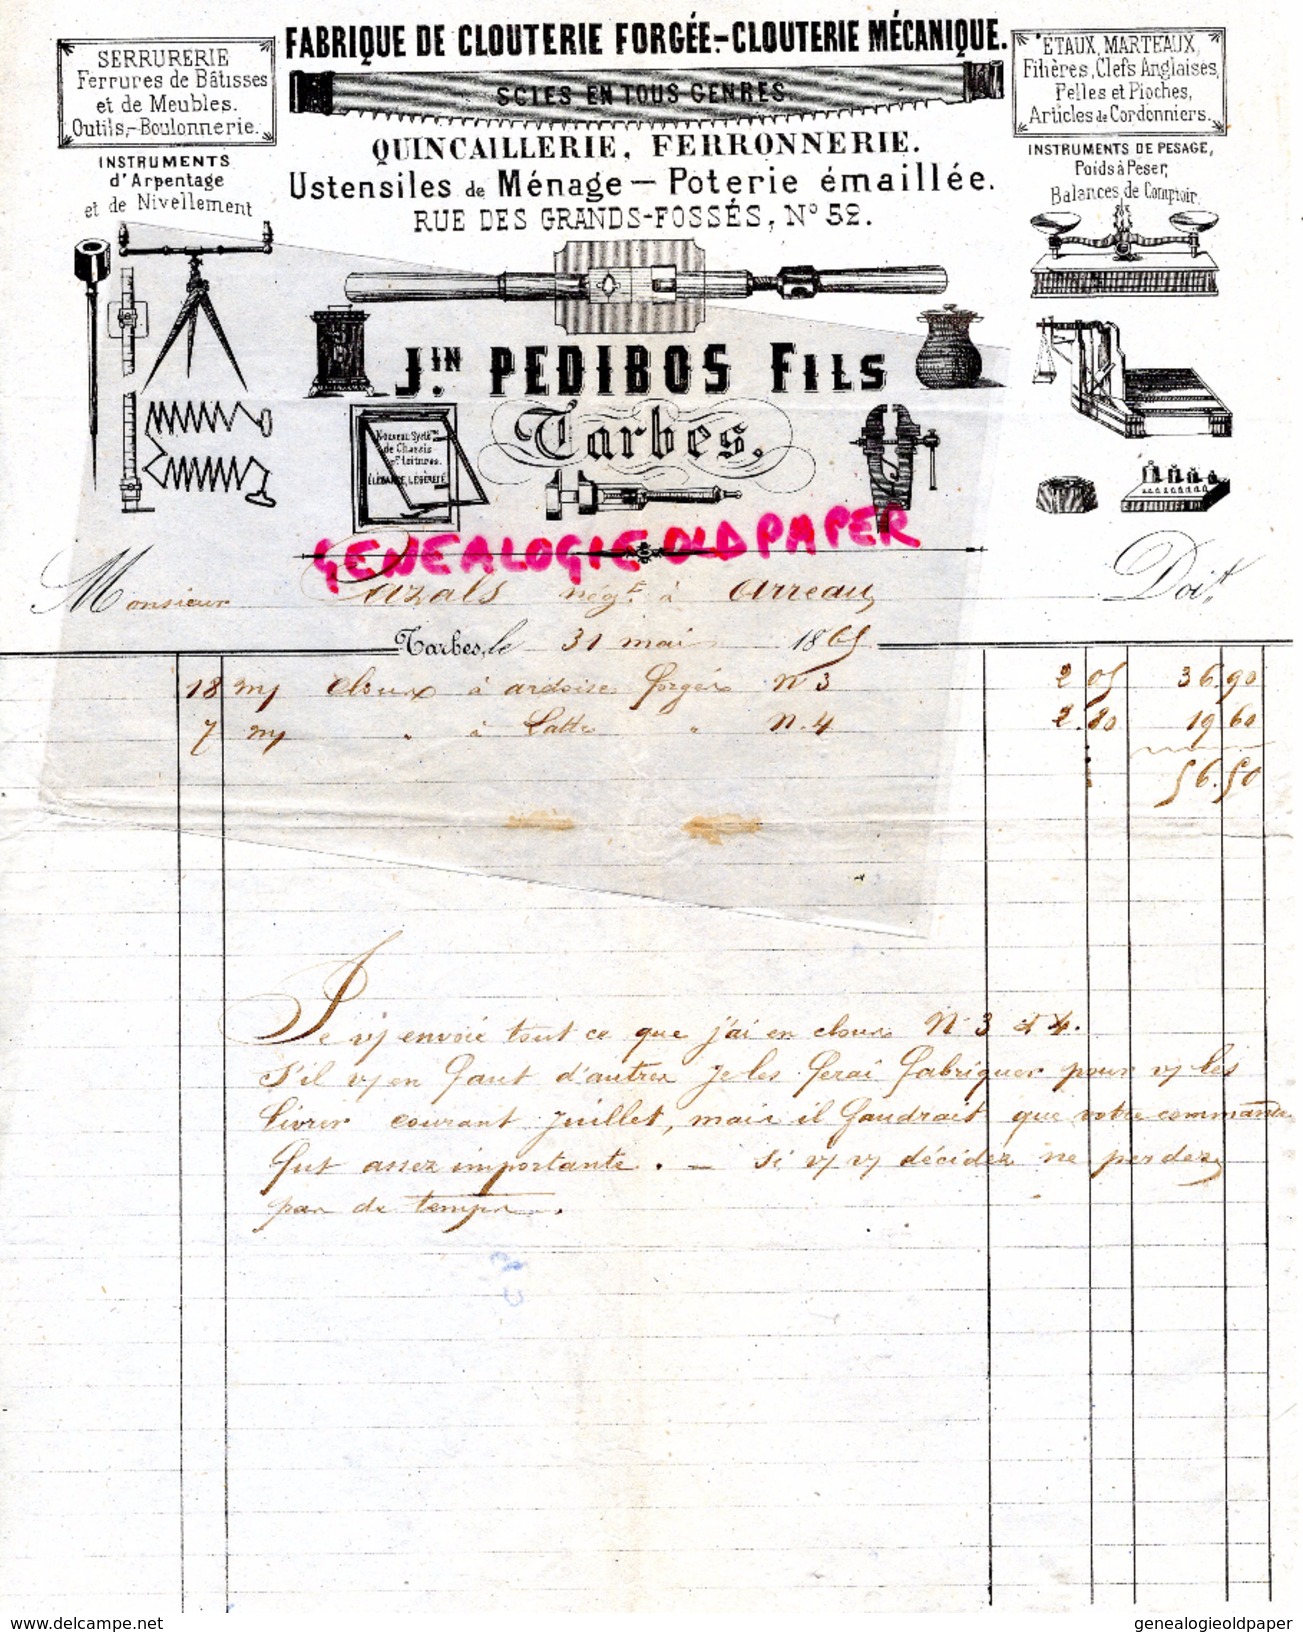 FABRIQUE DE CLOUTERIE FORGÉE.-CLOUTERIE MÉCANIQUE.
SCIES EN TOUS GENRES.
QUINCAILLERIE, FERRONNERIE.
Ustensiles de Ménage — Poterie émaillée.
RUE DES GRANDS-FOSSÉS, N° 52.
SERRURERIE
Ferrures de Bâtisses
et de Meubles.
Outils,-Boulonnerie.
INSTRUMENTS
d'Arpentage
et de Nivellement
ÉTAUX, MARTEAUX,
Filières, Clefs Anglaises,
Pelles et Pioches,
Articles de Cordonniers.
INSTRUMENTS DE PESAGE,
Poids à Peser,
Balances de Comptoir.
JIN. PEDIBOS FILS
Tarbes.
Nouveau Systême
de Chassis
ÉLÉGANCE, LÉGÈRETÉ
GENEALOGIE OLD PAPER
Monsieur Cazals négt. à Arreau Doit
Tarbes, le 31 mai 1865
18 my Cloux à ardoise forgés N 3 2 05 36.90
7 my " à Latte " N. 4 2.80 19 60
56.50
Je vs envoie tout ce que j'ai en cloux N° 3 et 4.
S'il vs en faut d'autres je les ferai fabriquer pour vs les
livrer courant Juillet, mais il faudrait que votre commande
fut assez importante. — Si vs vs décidez ne perdez
pas de temps.
delcampe.net
genealogieoldpaper